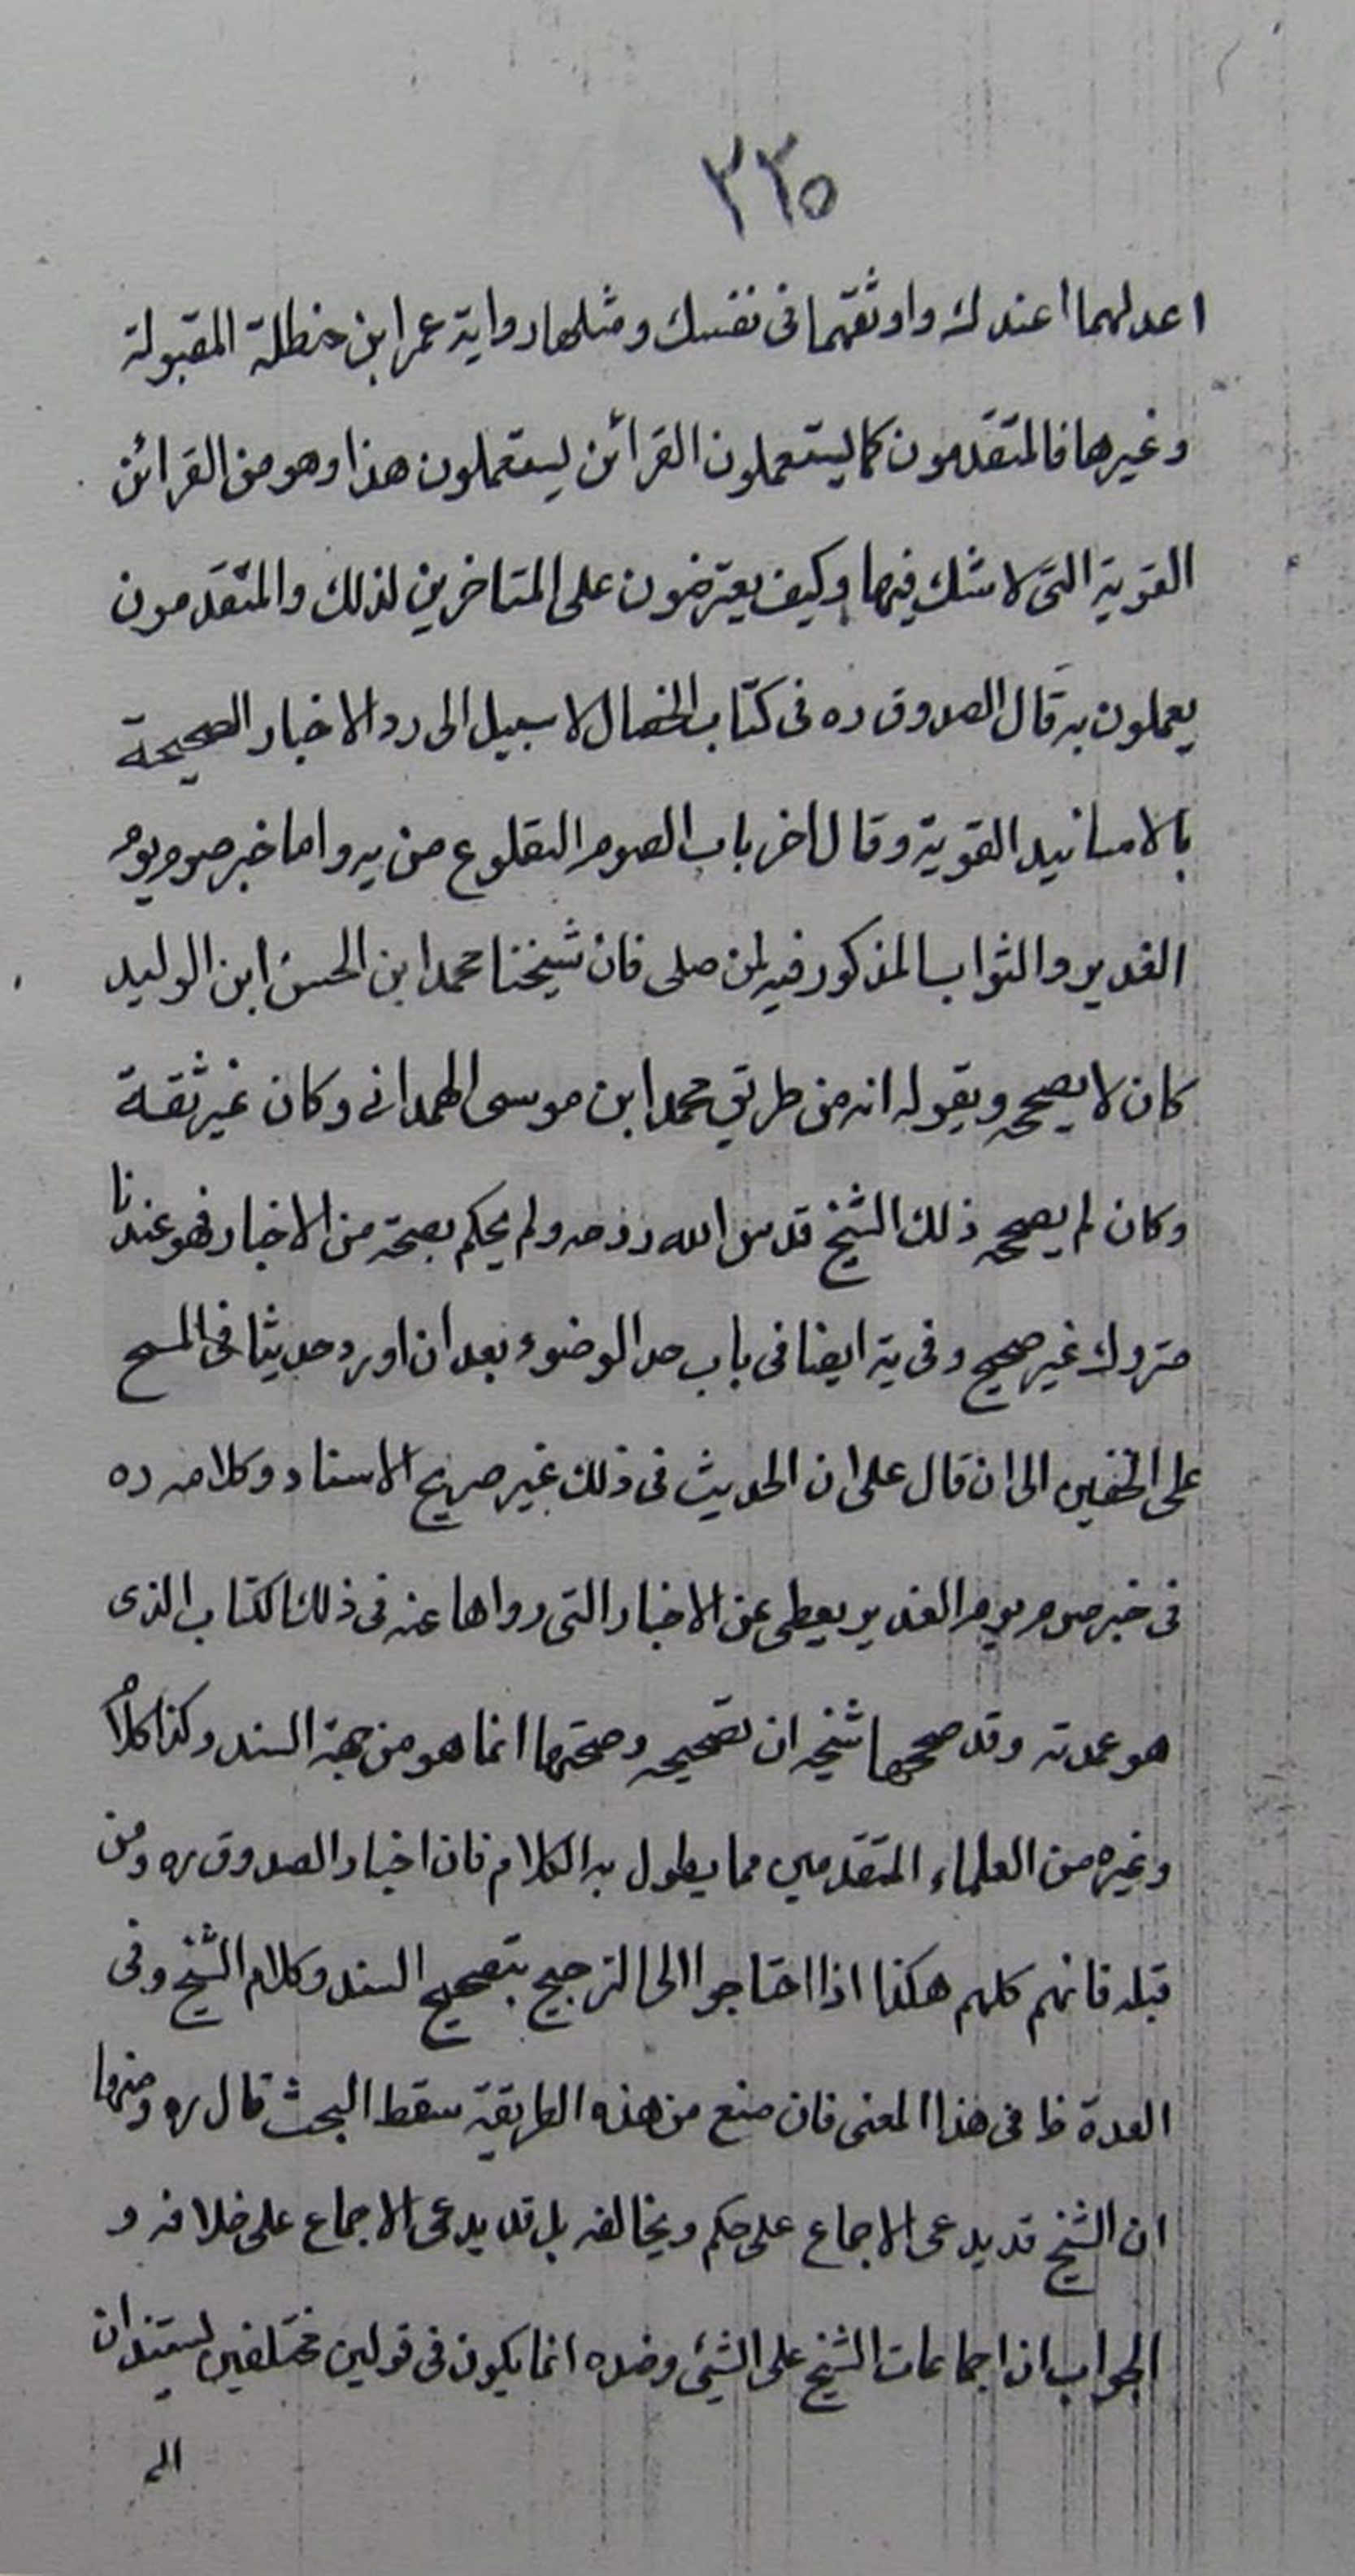 ٢٢٥
اعدلهما عندك واوثقهما فى نفسك ومثلها رواية عمر ابن حنظلة المقبولة
وغيرها فالمتقدمون كما يستعملون القرائن يستعملون هذا وهو من القرائن
القوية التى لا شك فيها وكيف يعترضون على المتاخرين لذلك والمتقدمون
يعملون به قال الصدوق ره فى كتاب الخصال لا سبيل الى رد الاخبار الصحيحة
بالاسانيد القوية وقال اخر باب الصوم التطوع من يه واما خبر صوم يوم
الغدير والثواب المذكور فيه لمن صلى فان شيخنا محمد ابن الحسن ابن الوليد
كان لا يصححه ويقول انه من طريق محمد ابن موسى الهمدانى وكان غير ثقة
وكان لم يصححه ذلك الشيخ قدس الله روحه ولم يحكم بصحته من الاخبار فهو عندنا
متروك غير صحيح وفى يه ايضا فى باب حد الوضوء بعد ان اورد حديثا فى المسح
على الخفين الى ان قال على ان الحديث فى ذلك غير صريح الاسناد وكلامه ره
فى خبر صوم يوم الغدير يعطى عن الاخبار التى رواها عنه فى ذلك الكتاب الذى
هو عمدته وقد صححها شيخه ان تصحيحه وصحتها انما هو من جهة السند وكذا كلام
وغيره من العلماء المتقدمين مما يطول به الكلام فان اخبار الصدوق ره ومن
قبله فانهم كلهم هكذا اذا احتاجوا الى الترجيح بتصحيح السند وكلام الشيخ وفى
العدة ظ فى هذا المعنى فان منع من هذه الطريقة سقط البحث قال ره ومنها
ان الشيخ قد يدعى الاجماع على حكم ويخالفه بل قد يدعى الاجماع على خلافه و
الجواب ان اجماعات الشيخ على الشيئ وضده انما يكون فى قولين مختلفين يستندان
الى